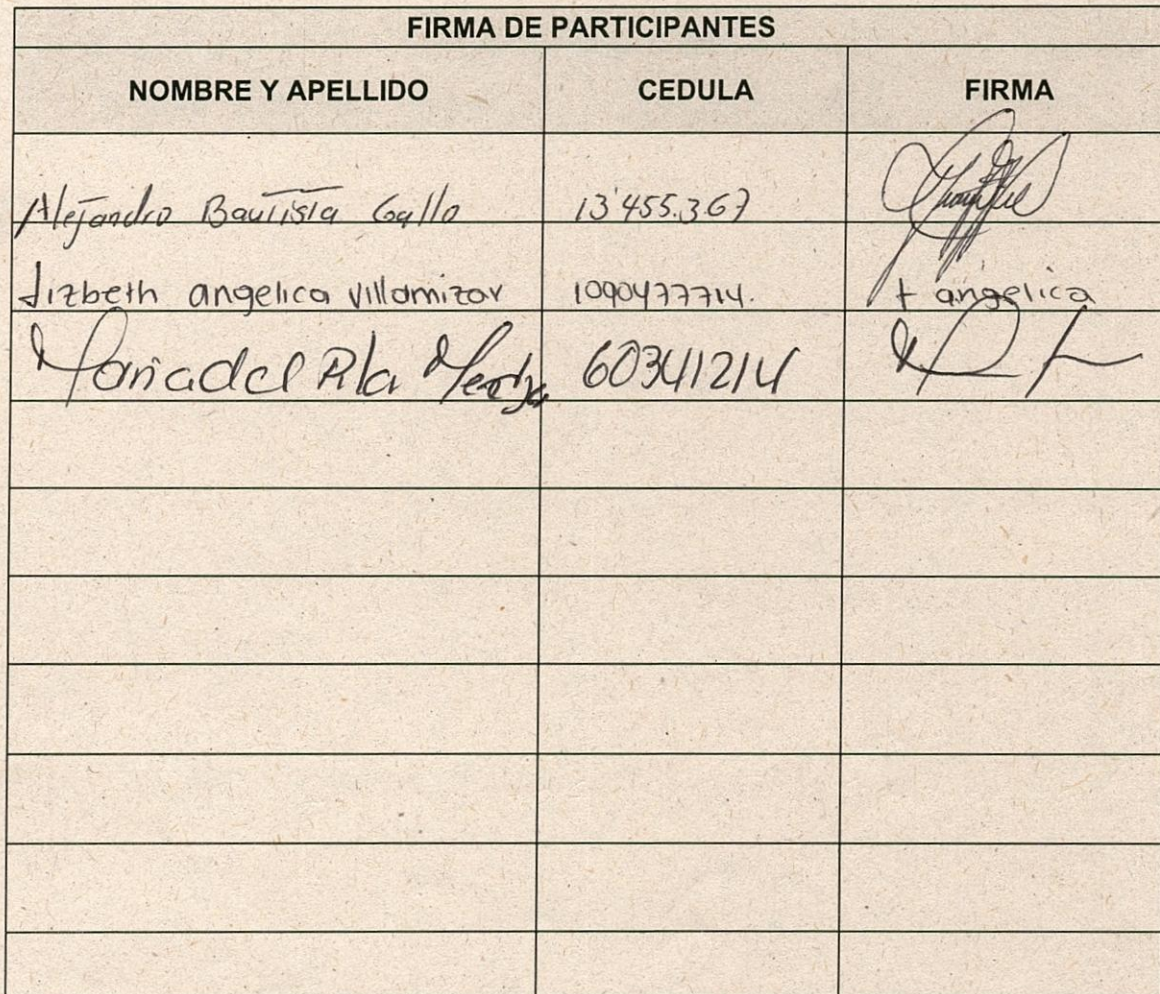 FIRMA DE PARTICIPANTES
NOMBRE Y APELLIDO CEDULA FIRMA
Alejandro Bautista Gallo 13'455.367
Lizbeth angelica villamizar 1090477714. + angelica
Maria del Pila Mendoza 60341214